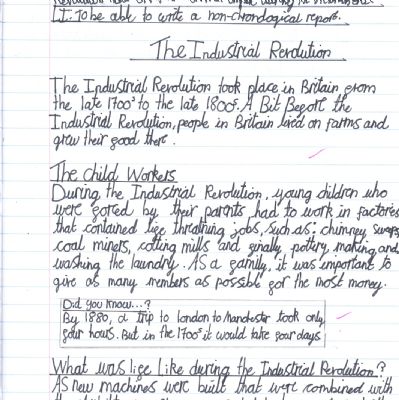 L.I. To be able to write a non-chronological report.
The Industrial Revolution
The Industrial Revolution took place in Britain from
the late 1700s to the late 1800s. A Bit Before the
Industrial Revolution, people in Britain lived on farms and
grew their good there.
The child Workers
During the Industrial Revolution, young children who
were forced by their parents had to work in factories
that contained life threathing jobs, such as; chimney sweeps,
coal miners, cotting mills and finally, pottery, making and
washing the laundry. As a family, it was important to
give as many members as possible for the most money.
Did you know...?
By 1880, a trip to london to Manchester took only
four hours. But in the 1700s it would take four days
What was life like during the Industrial Revolution?
As new machines were built that were combined with